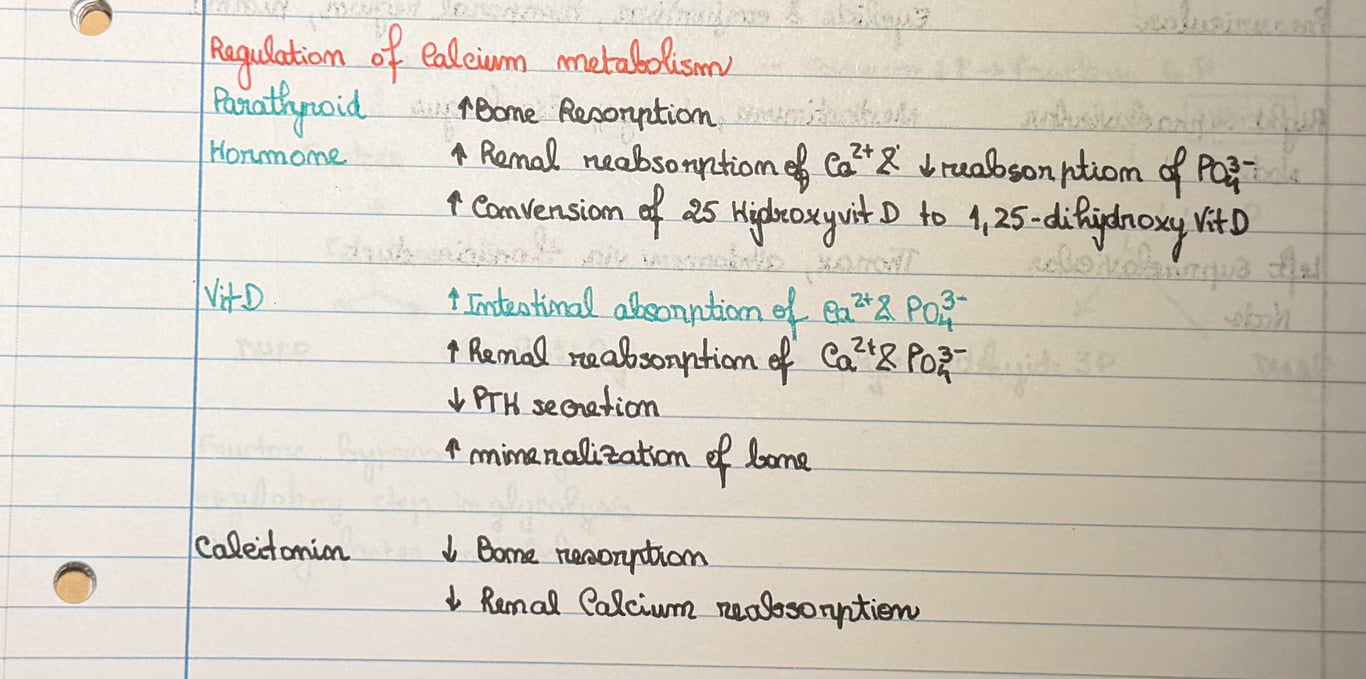 Regulation of Calcium metabolism
Parathyroid ↑Bone Resorption
Hormone ↑ Renal reabsorption of Ca²⁺ & ↓reabsorption of PO₄³⁻
↑ Conversion of 25 Hydroxyvit D to 1,25-dihydroxy Vit D
Vit D ↑ Intestinal absorption of Ca²⁺ & PO₄³⁻
↑ Renal reabsorption of Ca²⁺ & PO₄³⁻
↓ PTH secretion
↑ mineralization of bone
Calcitonin ↓ Bone resorption
↓ Renal Calcium reabsorption